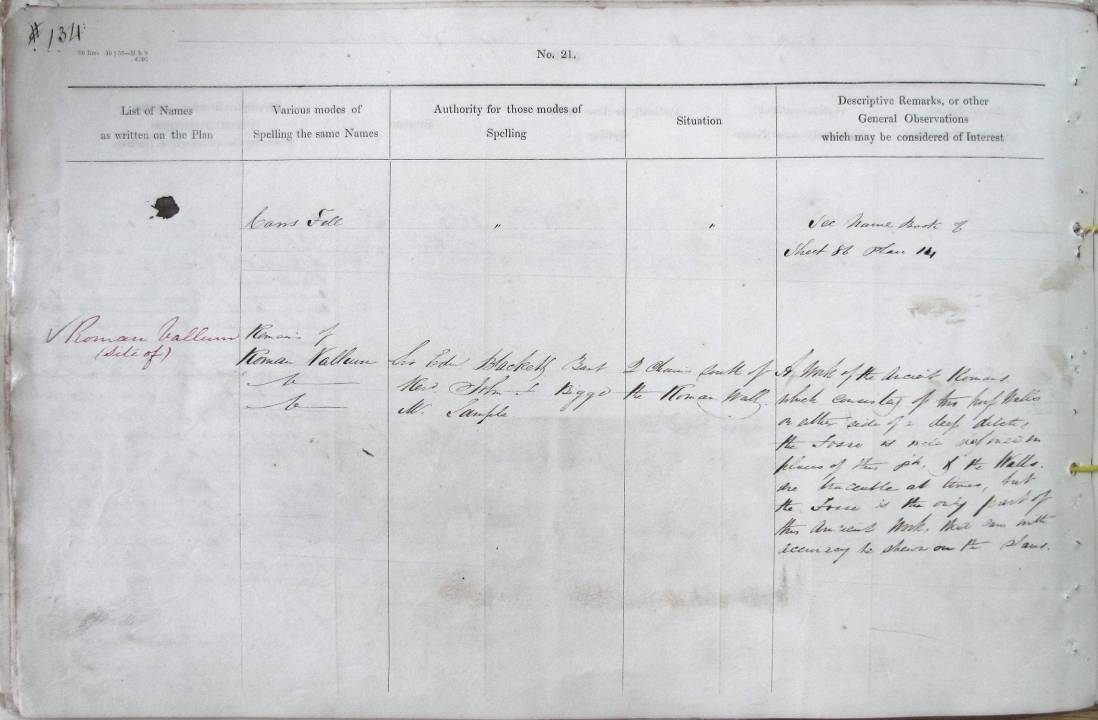 134
No. 21.
List of Names
as written on the Plan
Various modes of
Spelling the same Names
Authority for those modes of
Spelling
Situation
Descriptive Remarks, or other
General Observations
which may be considered of Interest
Carrs Fell
"
"
See Name Book of
Sheet 86 Plan 14
Roman Vallum
(Site of)
Remains of
Roman Vallum
Sir Edwd Blackett Bart
Revd John Bigge
Mr. Sample
2 Chains South of
the Roman Wall
A Work of the Ancient Romans
which consisted of two turf Walls
on either side of a deep ditch,
the Fosse is now in
places of this & the Walls
are traceable at times, but
the Fosse is the only part of
this Ancient Work, that can with
accuracy be shewn on the plans.